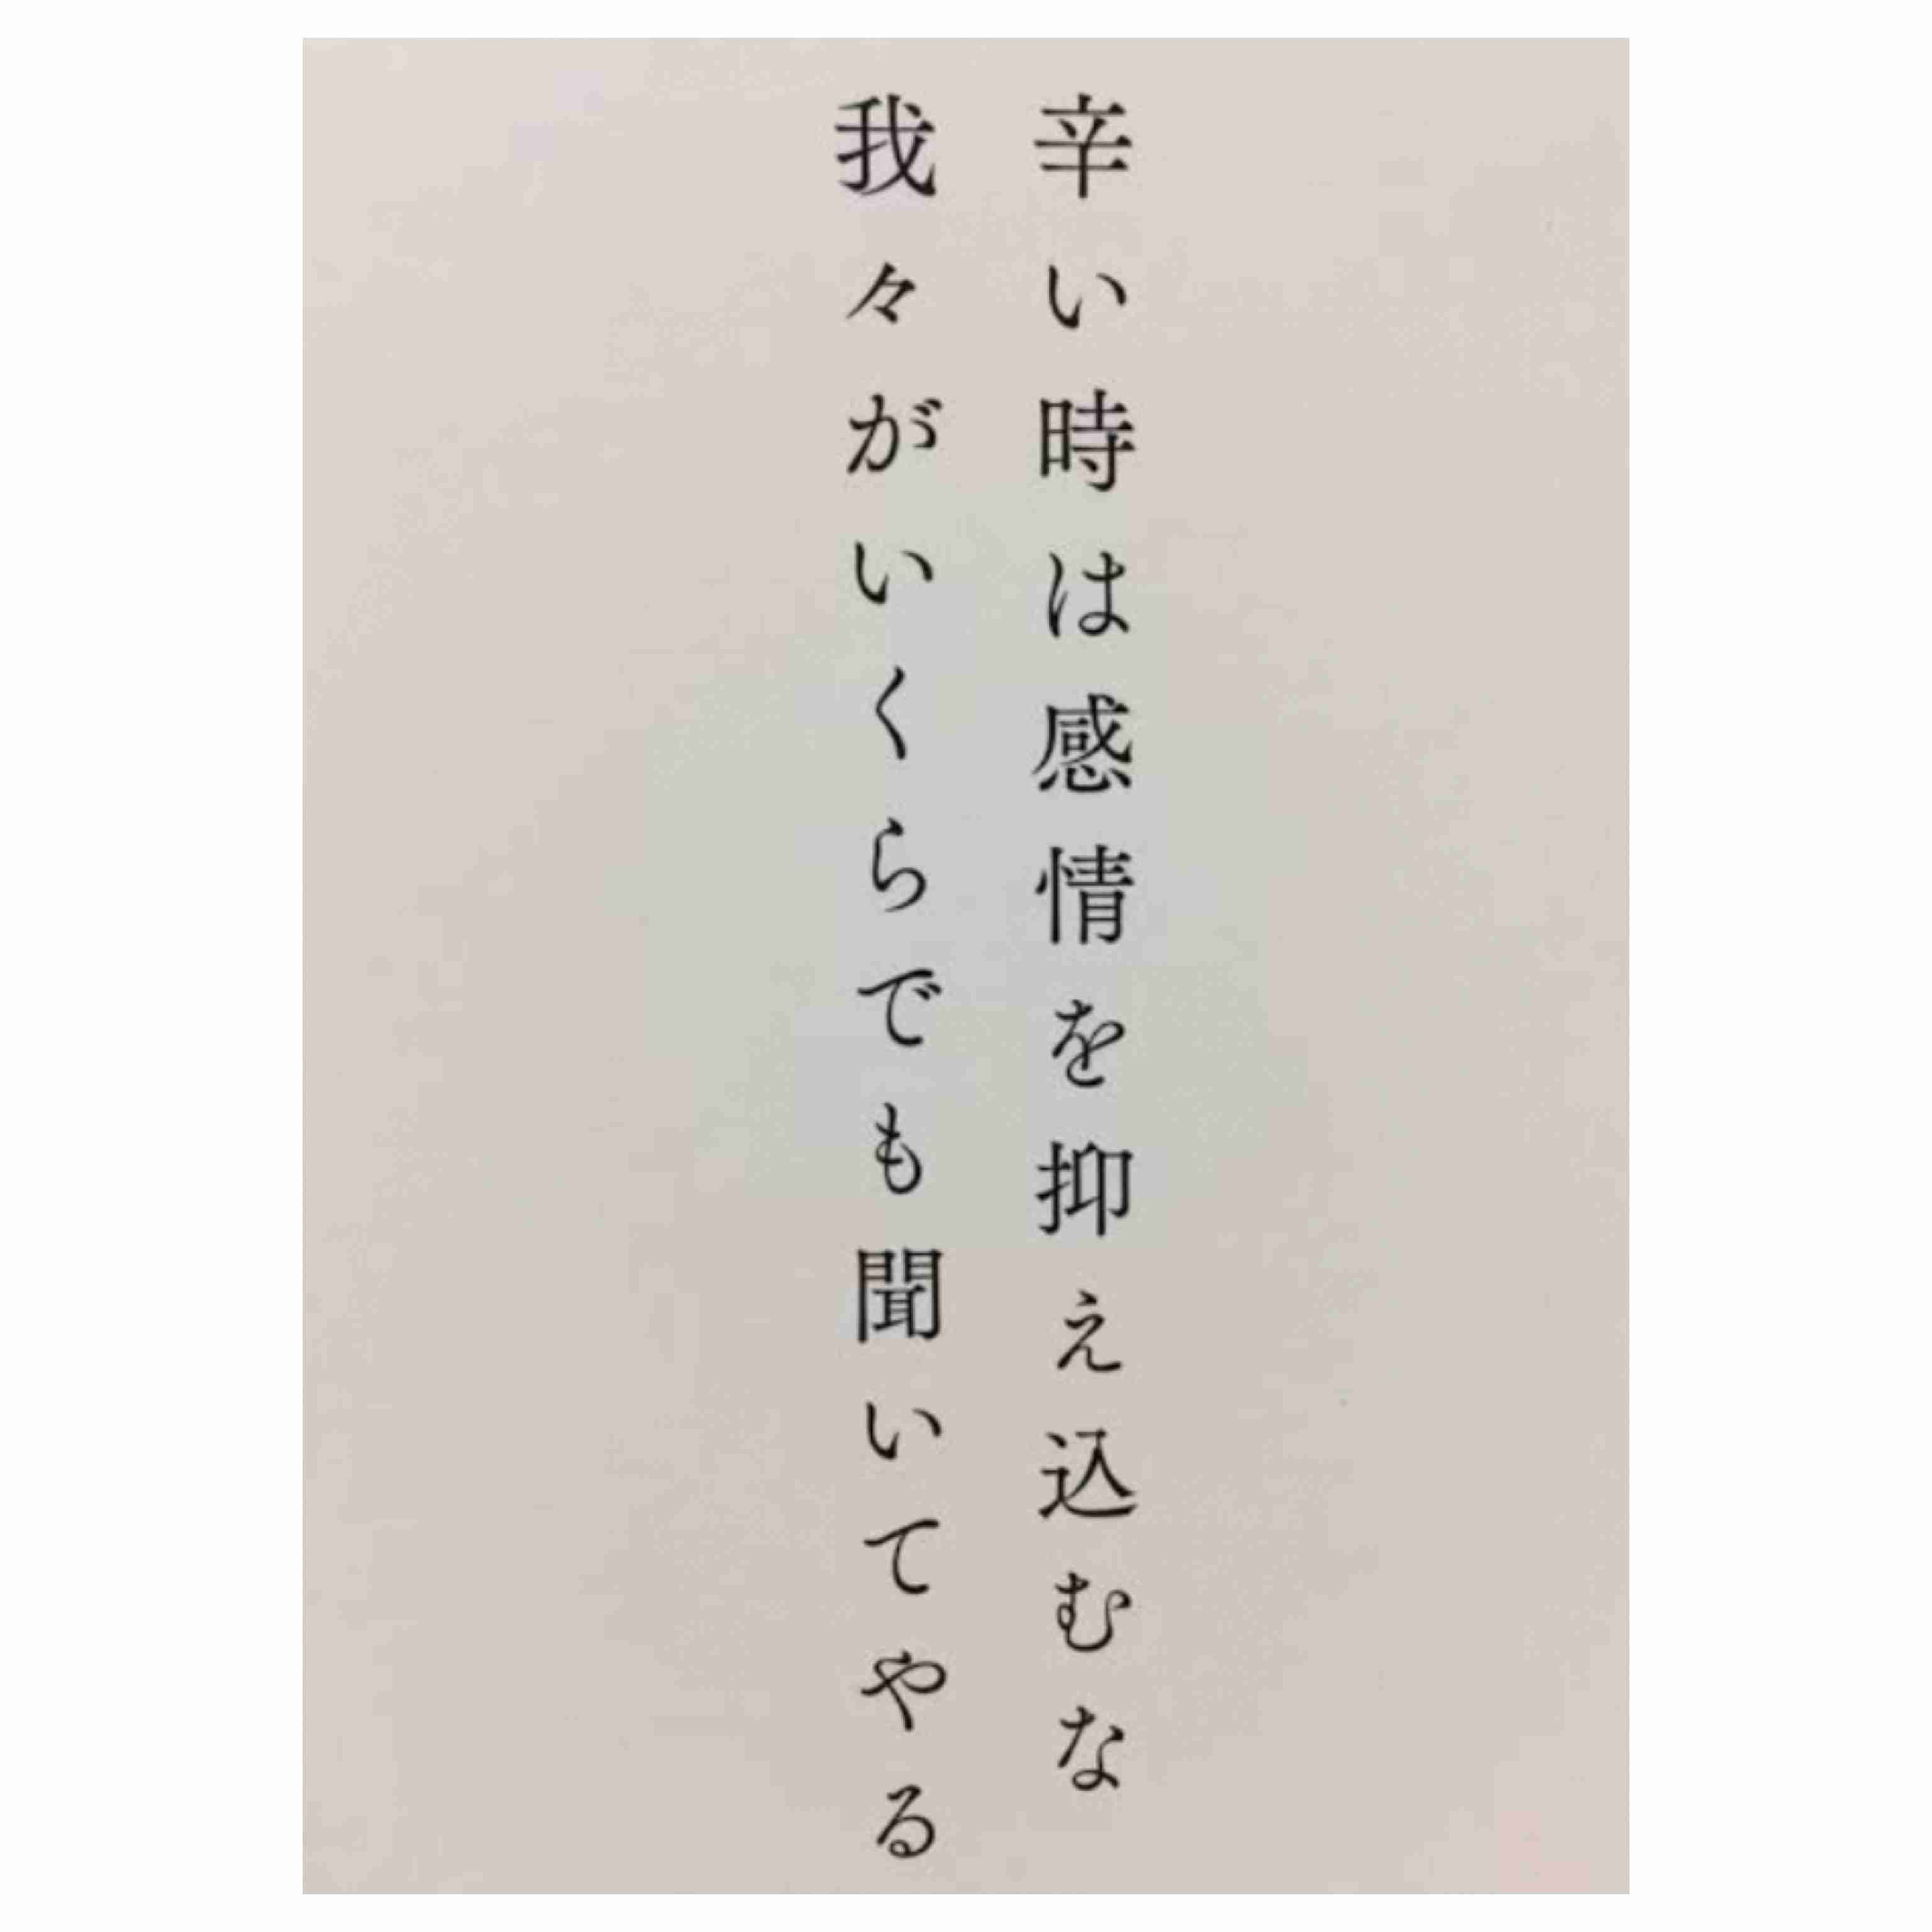 辛い時は感情を抑え込むな
我々がいくらでも聞いてやる